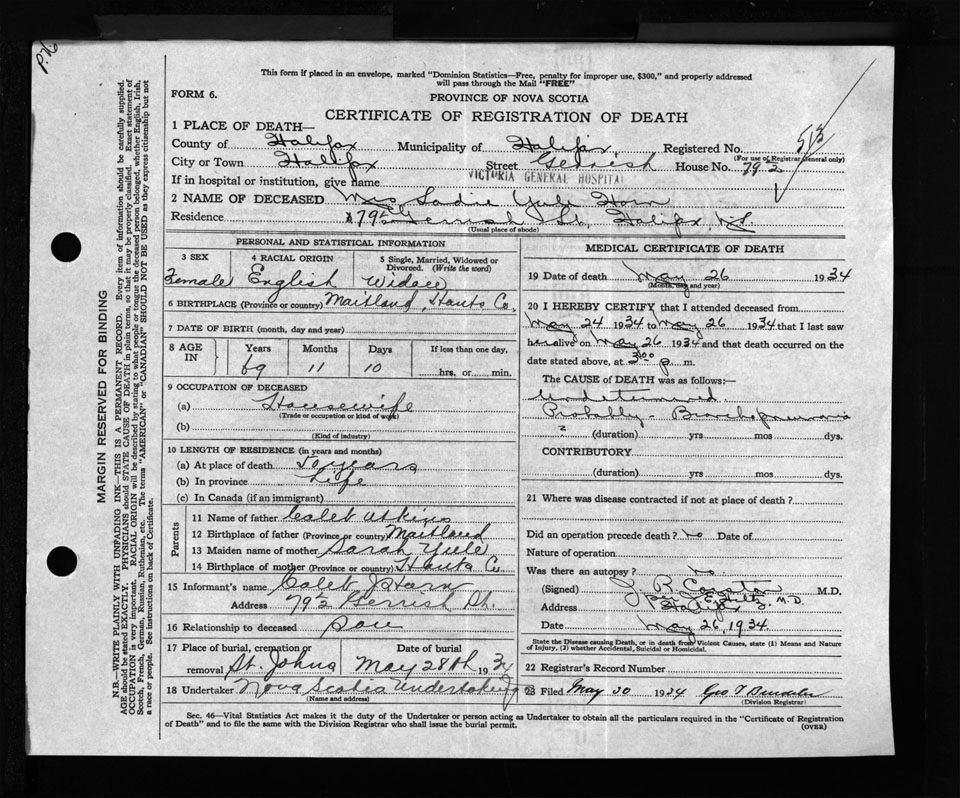 P.76
This form if placed in an envelope, marked "Dominion Statistics—Free, penalty for improper use, $300," and properly addressed
will pass through the Mail "FREE"
FORM 6.
PROVINCE OF NOVA SCOTIA
CERTIFICATE OF REGISTRATION OF DEATH
1 PLACE OF DEATH—
County of Halifax Municipality of Halifax, Registered No. 513
(For use of Registrar General only)
City or Town Halifax Street Gerrish House No. 79½
If in hospital or institution, give name VICTORIA GENERAL HOSPITAL
2 NAME OF DECEASED Mrs Yule Horn
Residence 79½ Gerrish St, Halifax, N.S.
(Usual place of abode)
PERSONAL AND STATISTICAL INFORMATION
3 SEX 4 RACIAL ORIGIN 5 Single, Married, Widowed or Divorced. (Write the word)
Female English Widow
6 BIRTHPLACE (Province or country) Maitland, Hants Co.
7 DATE OF BIRTH (month, day and year)
8 AGE IN Years Months Days If less than one day,
69 11 10 hrs. or min.
9 OCCUPATION OF DECEASED
(a) Housewife
(Trade or occupation or kind of work)
(b)
(Kind of industry)
10 LENGTH OF RESIDENCE (in years and months)
(a) At place of death 50 years
(b) In province Life
(c) In Canada (if an immigrant)
Parents
11 Name of father Calet Atkins
12 Birthplace of father (Province or country) Maitland
13 Maiden name of mother Sarah Yule
14 Birthplace of mother (Province or country) Hants Co
15 Informant's name Calet J Horn
Address 79½ Gerrish St.
16 Relationship to deceased Son
17 Place of burial, cremation or removal St. Johns Date of burial May 28th 1934
18 Undertaker Nova Scotia Undertaking
(Name and address)
MEDICAL CERTIFICATE OF DEATH
19 Date of death May 26 1934
(Month, day and year)
20 I HEREBY CERTIFY that I attended deceased from
May 24 1934 to May 26 1934 that I last saw
her alive on May 26 1934 and that death occurred on the
date stated above, at 3:00 p m.
The CAUSE of DEATH was as follows:—
Undetermined.
Probably - Bronchopneumonia
? (duration) yrs mos dys.
CONTRIBUTORY
(duration) yrs mos dys.
21 Where was disease contracted if not at place of death?
Did an operation precede death? No Date of
Nature of operation
Was there an autopsy? No.
(Signed) J. R. M.D.
Address Halifax M.D.
Date May 26, 1934
State the Disease causing Death, or in death from Violent Causes, state (1) Means and Nature
of Injury, (2) whether Accidental, Suicidal or Homicidal.
22 Registrar's Record Number
23 Filed May 30 1934 Geo T
(Division Registrar)
Sec. 46—Vital Statistics Act makes it the duty of the Undertaker or person acting as Undertaker to obtain all the particulars required in the "Certificate of Registration
of Death" and to file the same with the Division Registrar who shall issue the burial permit.
(OVER)
MARGIN RESERVED FOR BINDING
N.B.—WRITE PLAINLY WITH UNFADING INK—THIS IS A PERMANENT RECORD. Every item of information should be carefully supplied.
AGE should be stated EXACTLY. PHYSICIANS should STATE CAUSE OF DEATH in plain terms, so that it may be properly classified. Exact statement of
OCCUPATION is very important. RACIAL ORIGIN will be described by stating to what people or tongue the deceased person belonged, whether English, Irish,
Scotch, French, German, Russian, Ruthenian, etc. The terms "AMERICAN" or "CANADIAN" SHOULD NOT BE USED as they express citizenship but not
a race or people. See instructions on back of Certificate.